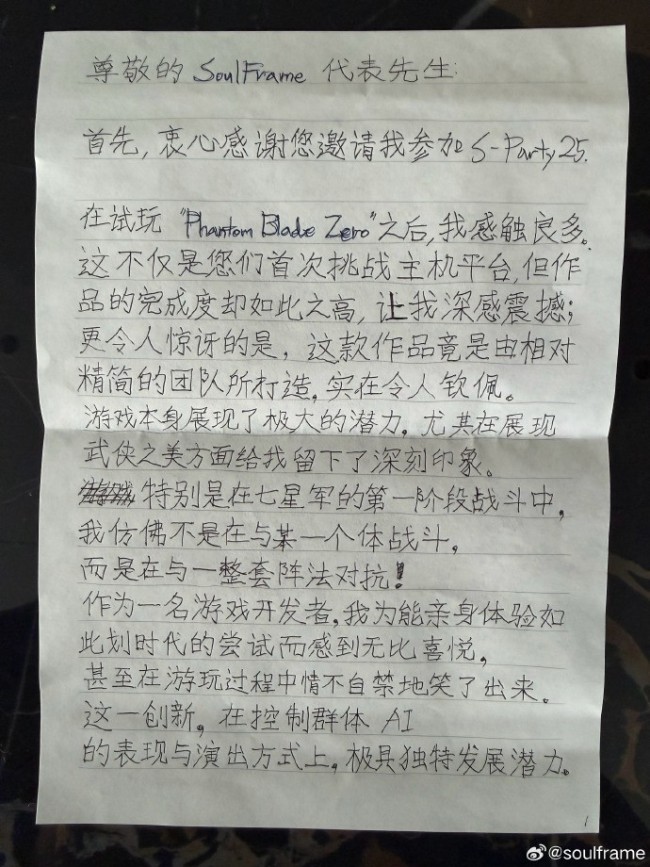 尊敬的 SoulFrame 代表先生:
首先, 衷心感谢您邀请我参加 S-Party 25.
在试玩 "Phantom Blade Zero"之后,我感触良多。
这不仅是您们首次挑战主机平台,但作
品的完成度却如此之高, 让我深感震撼;
更令人惊讶的是, 这款作品竟是由相对
精简的团队所打造, 实在令人钦佩。
游戏本身展现了极大的潜力, 尤其在展现
武侠之美方面给我留下了深刻印象。
特别是在七星军的第一阶段战斗中,
我仿佛不是在与某一个体战斗,
而是在与一整套阵法对抗!
作为一名游戏开发者,我为能亲身体验如
此划时代的尝试而感到无比喜悦,
甚至在游玩过程中情不自禁地笑了出来。
这一创新, 在控制群体 AI
的表现与演出方式上, 极具独特发展潜力。
1
@soulframe